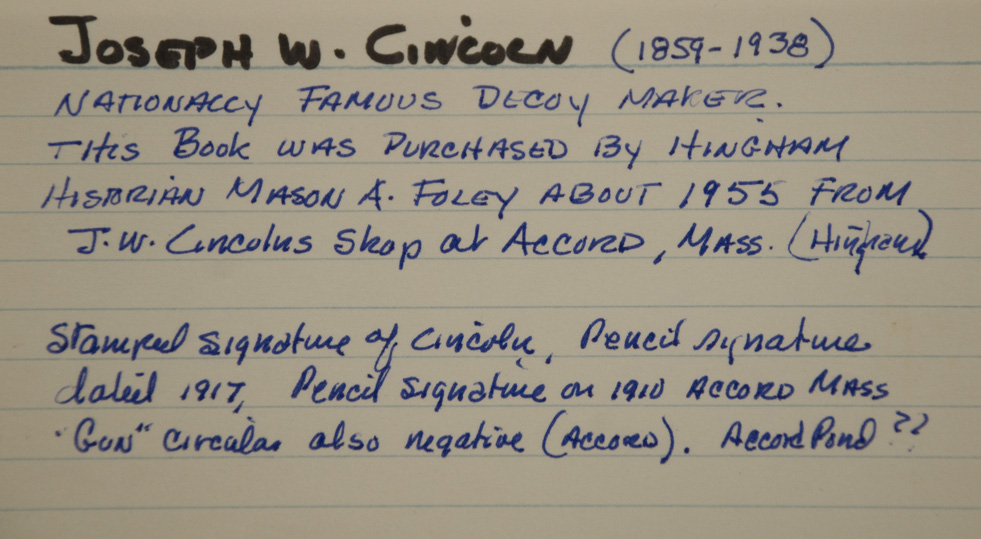 JOSEPH W. LINCOLN (1859-1938)
NATIONALLY FAMOUS DECOY MAKER.
THIS Book WAS PURCHASED BY HINGHAM
HISTORIAN MASON A. FOLEY ABOUT 1955 FROM
J.W. Lincolns Shop at ACCORD, MASS. (Hingham)
Stamped signature of Lincoln, Pencil signature
dated 1917, Pencil signature on 1910 ACCORD MASS
"GUN" circular also negative (ACCORD). Accord Pond ??